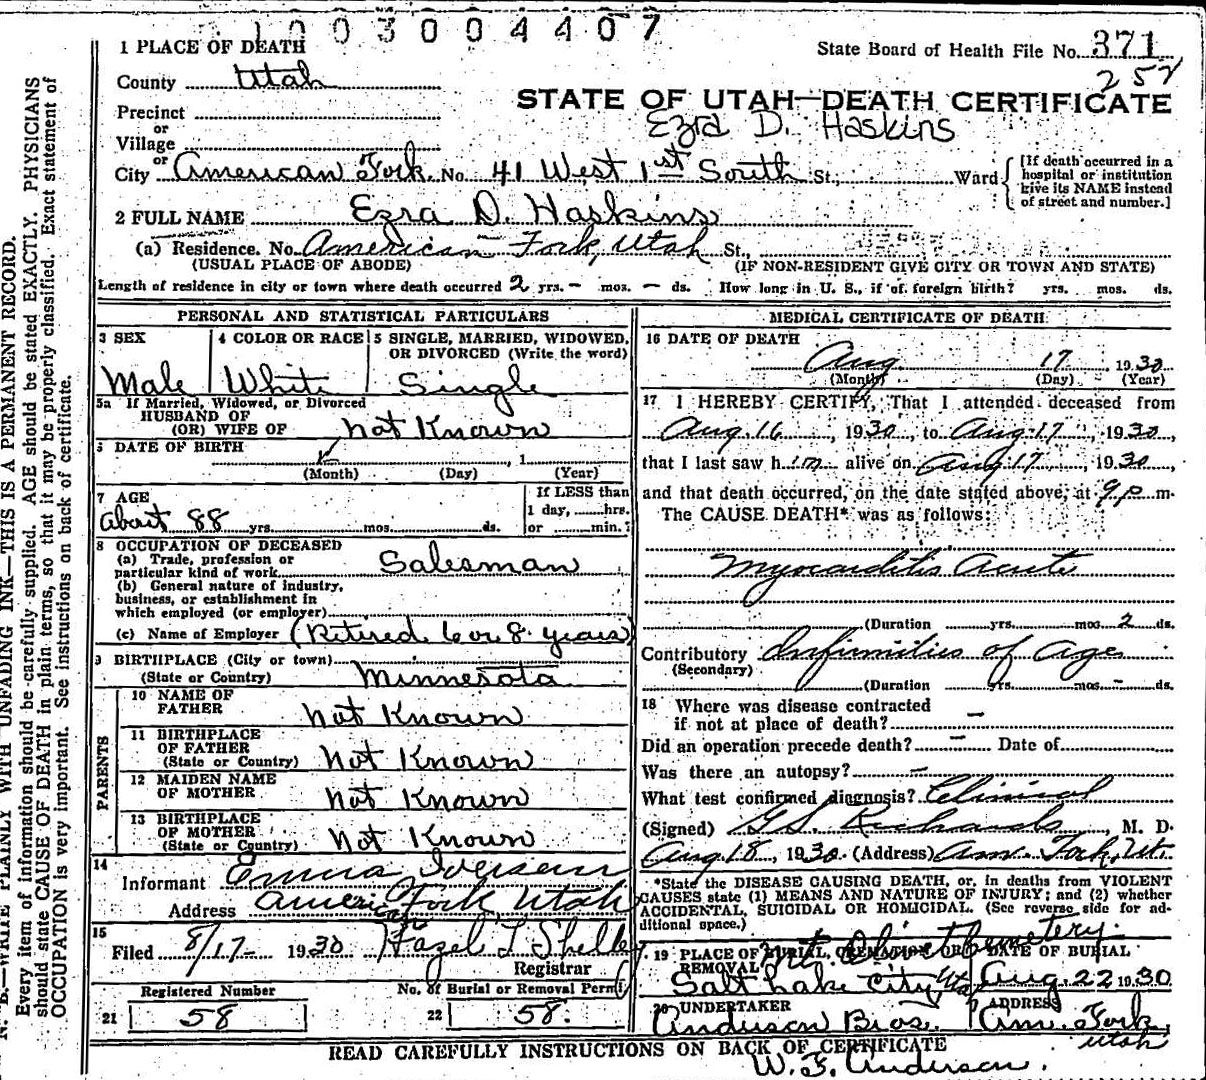 1003004407
1 PLACE OF DEATH
State Board of Health File No. 371
252
County Utah
STATE OF UTAH—DEATH CERTIFICATE
Precinct
Ezra D. Haskins
or
Village
or
City American Fork No. 41 West 1st South St., Ward
[If death occurred in a hospital or institution give its NAME instead of street and number.]
2 FULL NAME Ezra D. Haskins
(a) Residence. No. American Fork, Utah St.,
(USUAL PLACE OF ABODE) (IF NON-RESIDENT GIVE CITY OR TOWN AND STATE)
Length of residence in city or town where death occurred 2 yrs. - mos. - ds. How long in U. S., if of foreign birth? yrs. mos. ds.
PERSONAL AND STATISTICAL PARTICULARS
3 SEX
Male
4 COLOR OR RACE
White
5 SINGLE, MARRIED, WIDOWED, OR DIVORCED (Write the word)
Single
5a If Married, Widowed, or Divorced
HUSBAND OF
(OR) WIFE OF not Known
6 DATE OF BIRTH
, 1
(Month) (Day) (Year)
7 AGE
about 88 yrs. mos. ds.
If LESS than
1 day, hrs.
or min.?
8 OCCUPATION OF DECEASED
(a) Trade, profession or
particular kind of work Salesman
(b) General nature of industry,
business, or establishment in
which employed (or employer)
(c) Name of Employer (Retired 6 or 8 years)
9 BIRTHPLACE (City or town)
(State or Country) Minnesota
PARENTS
10 NAME OF
FATHER Not Known
11 BIRTHPLACE
OF FATHER
(State or Country) Not Known
12 MAIDEN NAME
OF MOTHER Not Known
13 BIRTHPLACE
OF MOTHER
(State or Country) Not Known
14
Informant Emma Iversen
Address American Fork, Utah
15
Filed 8/17- 1930 Hazel L Shelley
Registrar
Registered Number
21 58
No. of Burial or Removal Permit
22 58.
MEDICAL CERTIFICATE OF DEATH
16 DATE OF DEATH
Aug. 17 1930
(Month) (Day) (Year)
17 I HEREBY CERTIFY, That I attended deceased from
Aug. 16, 1930, to Aug 17, 1930,
that I last saw him alive on Aug 17, 1930,
and that death occurred, on the date stated above, at 9 p m.
The CAUSE DEATH* was as follows:
Myocarditis Acute
(Duration yrs. mos. 2 ds.
Contributory Infirmities of Age
(Secondary)
(Duration yrs. mos. - ds.
18 Where was disease contracted
if not at place of death? -
Did an operation precede death? - Date of
Was there an autopsy? -
What test confirmed diagnosis? Clinical
(Signed) G.S. Richards, M. D.
Aug 18, 1930. (Address) Am. Fork, Ut.
*State the DISEASE CAUSING DEATH, or, in deaths from VIOLENT
CAUSES state (1) MEANS AND NATURE OF INJURY; and (2) whether
ACCIDENTAL, SUICIDAL OR HOMICIDAL. (See reverse side for ad-
ditional space.)
19 PLACE OF BURIAL, CREMATION OR REMOVAL
Mt. Olivet Cemetery.
Salt Lake City Ut.
DATE OF BURIAL
Aug. 22 1930
20 UNDERTAKER
Anderson Bros.
ADDRESS
Am. Fork, Utah
READ CAREFULLY INSTRUCTIONS ON BACK OF CERTIFICATE
W. F. Anderson.
N. B.—WRITE PLAINLY WITH UNFADING INK—THIS IS A PERMANENT RECORD.
Every item of information should be carefully supplied. AGE should be stated EXACTLY. PHYSICIANS
should state CAUSE OF DEATH in plain terms, so that it may be properly classified. Exact statement of
OCCUPATION is very important. See instructions on back of certificate.